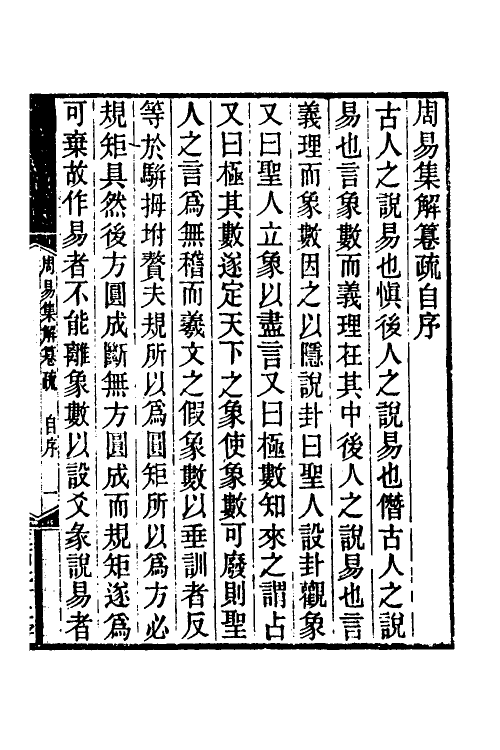 周易集解纂疏自序
古人之說易也愼後人之說易也僭古人之說
易也言象數而義理在其中後人之說易也言
義理而象數因之以隱說卦曰聖人設卦觀象
又曰聖人立象以盡言又曰極數知來之謂占
又曰極其數遂定天下之象使象數可廢則聖
人之言爲無稽而羲文之假象數以垂訓者反
等於駢拇坿贅夫規所以爲圓矩所以爲方必
規矩具然後方圓成斷無方圓成而規矩遂爲
可棄故作易者不能離象數以設爻彖說易者
周易集解纂疏 自序 一